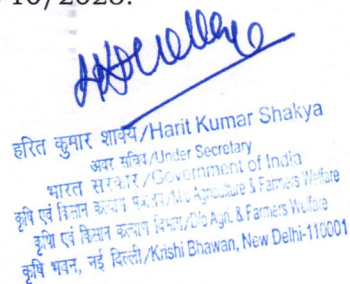 10/2023.
हरित कुमार शाक्य/Harit Kumar Shakya
अवर सचिव/Under Secretary
भारत सरकार/Government of India
कृषि एवं किसान कल्याण मंत्रालय/M/o Agriculture & Farmers Welfare
कृषि एवं किसान कल्याण विभाग/D/o Agri. & Farmers Welfare
कृषि भवन, नई दिल्ली/Krishi Bhawan, New Delhi-110001